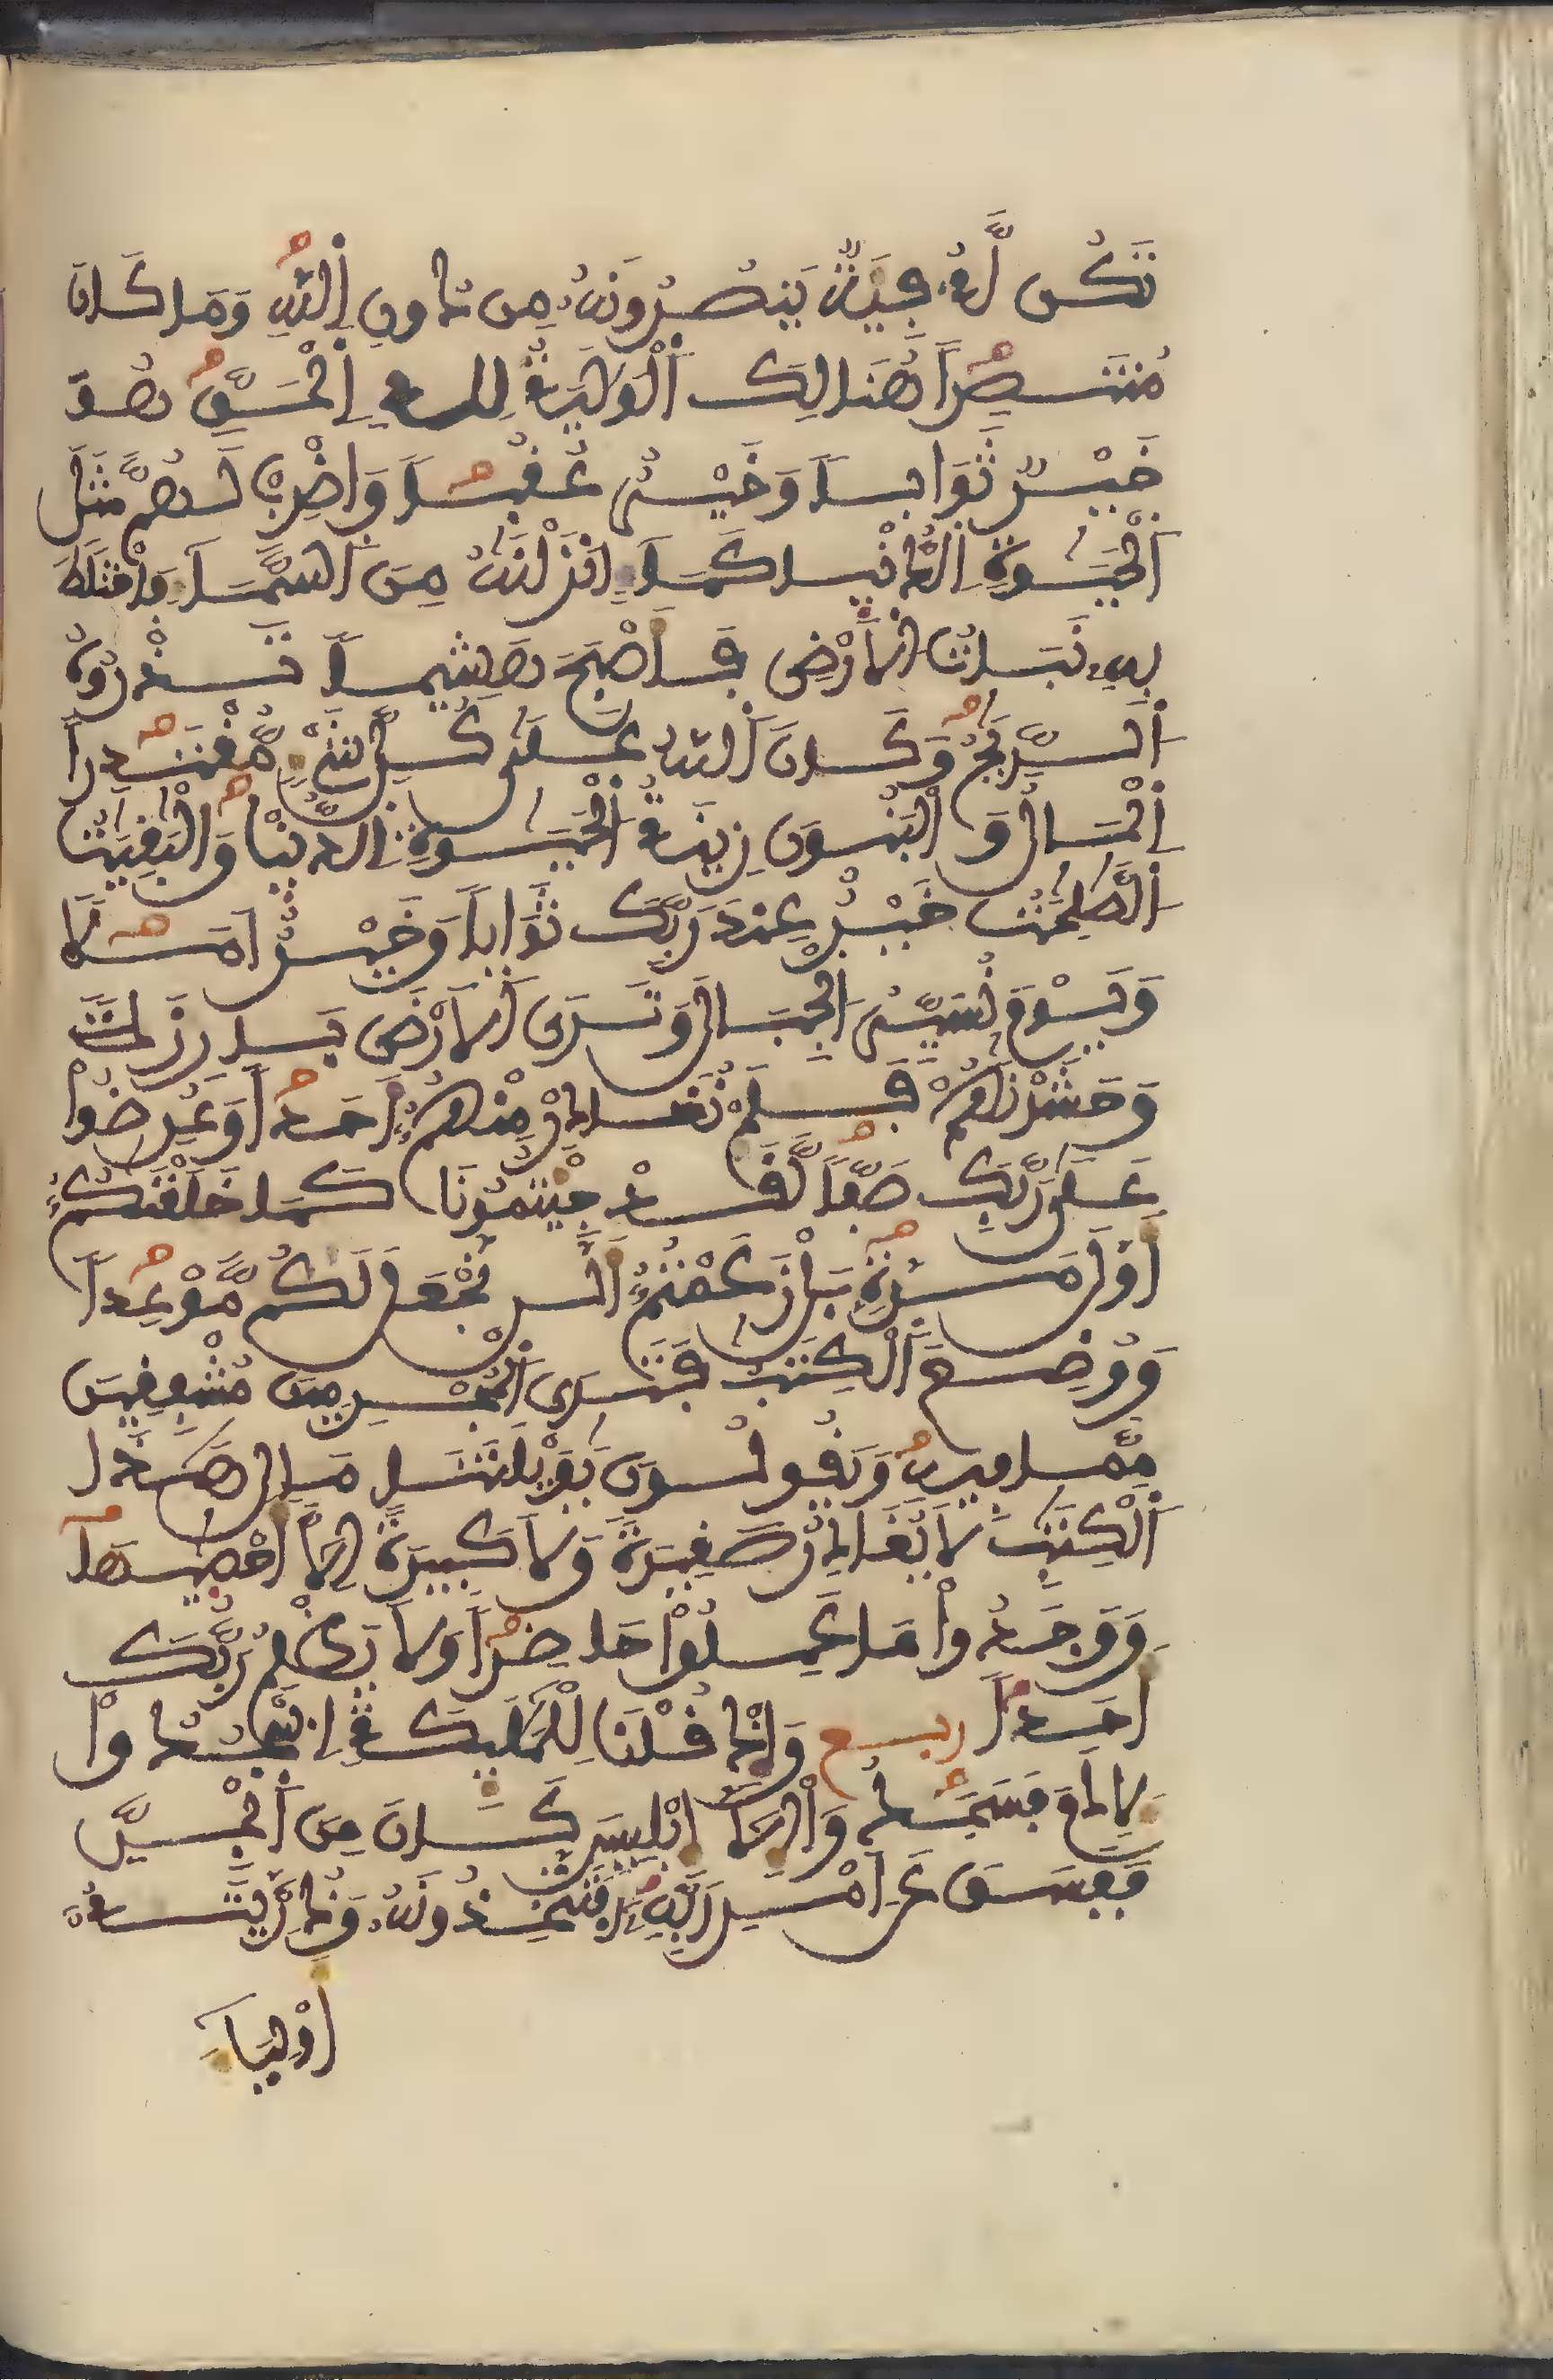 تَكُن لَّهُۥ فِيَةٌ يَنصُرُونَهُۥ مِن دُونِ اِ۬للَّهِ وَمَا كَانَ
مُنتَصِراً هُنَالِكَ اَ۬لْوَلَٰيَةُ لِلهِ اِ۬لْحَقِّ هُوَ
خَيْرٌ ثَوَاباً وَخَيْرٌ عُقُباً وَاضْرِبْ لَهُم مَّثَلَ
اَ۬لْحَيَوٰةِ اِ۬لدُّنْيا كَمَآءٍ اَنزَلْنَٰهُ مِنَ اَ۬لسَّمَآءِ فَاخْتَلَطَ
بِهِۦ نَبَاتُ اُ۬لَارْضِ فَأَصْبَحَ هَشِيماً تَذْرُوهُ
اُ۬لرِّيَٰحُ وَكَانَ اَ۬للَّهُ عَلَىٰ كُلِّ شَےْءٍ مُّقْتَدِراً
اِ۬لْمَالُ وَالْبَنُونَ زِينَةُ اُ۬لْحَيَوٰةِ اِ۬لدُّنْيا وَالْبَٰقِيَٰتُ
اُ۬لصَّٰلِحَٰتُ خَيْرٌ عِندَ رَبِّكَ ثَوَاباً وَخَيْرٌ اَمَلًا
وَيَوْمَ نُسَيِّرُ اُ۬لْجِبَالَ وَتَرَى اَ۬لَارْضَ بَارِزَةً
وَحَشَرْنَٰهُمْ فَلَمْ نُغَادِرْ مِنْهُمُۥٓ أَحَداً وَعُرِضُوا
عَلَىٰ رَبِّكَ صَفّاً لَّقَدْ جِيْتُمُونَا كَمَا خَلَقْنَٰكُمُۥٓ
أَوَّلَ مَرَّةٍ بَلْ زَعَمْتُمُۥٓ أَلَّن نَّجْعَلَ لَكُم مَّوْعِداً
وَوُضِعَ اَ۬لْكِتَٰبُ فَتَرَى اَ۬لْمُجْرِمِينَ مُشْفِقِينَ
مِمَّا فِيهِ وَيَقُولُونَ يَٰوَيْلَتَنَا مَالِ هَٰذَا
اَ۬لْكِتَٰبِ لَا يُغَادِرُ صَغِيرَةً وَلَا كَبِيرَةً اِلَّآ أَحْصَيٰهَا
وَوَجَدُوا مَا عَمِلُوا حَاضِراً وَلَا يَظْلِمُ رَبُّكَ
أَحَداً ربع وَإِذْ قُلْنَا لِلْمَلَٰٓئِكَةِ اِ۟سْجُدُوا
لِأَدَمَ فَسَجَدُوٓا إِلَّآ إِبْلِيسَ كَانَ مِنَ اَ۬لْجِنِّ
فَفَسَقَ عَنَ اَمْرِ رَبِّهِۦٓ أَفَتَتَّخِذُونَهُۥ وَذُرِّيَّتَهُۥٓ
أَوْلِيَآءَ